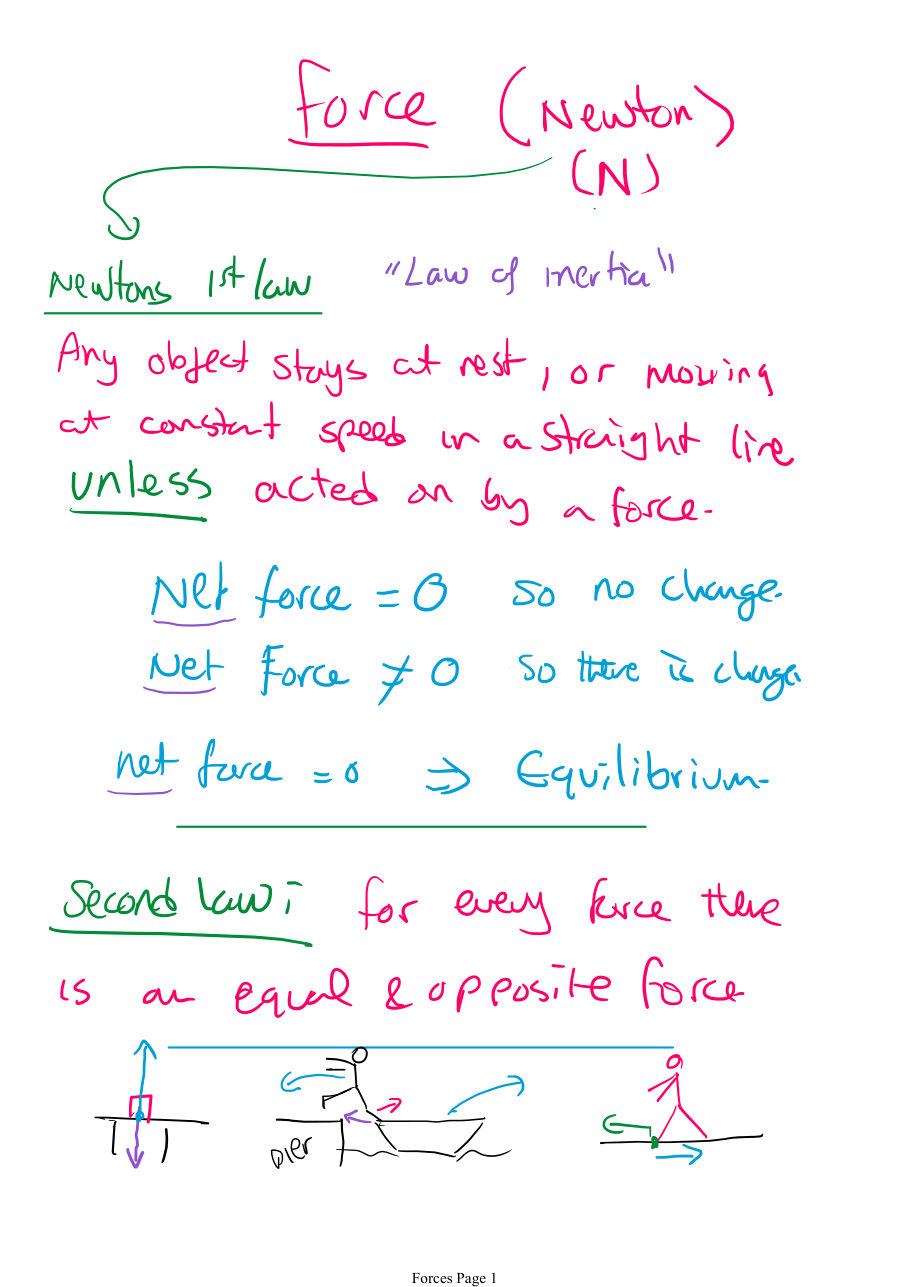 Force (Newton)
(N)
Newtons 1st law "Law of inertia"
Any object stays at rest, or moving
at constant speed in a straight line
unless acted on by a force.
Net force = 0 so no change.
Net Force ≠ 0 so there is change.
net force = 0 ⇒ Equilibrium.
Second law: for every force there
is an equal & opposite force
pier
Forces Page 1